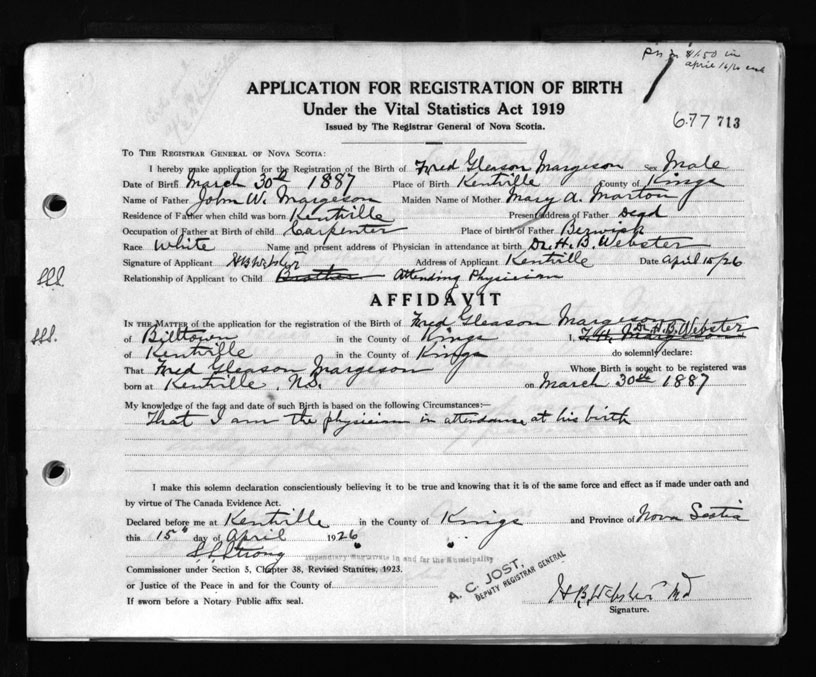 April 16/26
APPLICATION FOR REGISTRATION OF BIRTH
Under the Vital Statistics Act 1919
Issued by The Registrar General of Nova Scotia.
677 713
TO THE REGISTRAR GENERAL OF NOVA SCOTIA:
I hereby make application for the Registration of the Birth of Fred Gleason Margeson Sex Male
Date of Birth March 30th 1887 Place of Birth Kentville County of Kings
Name of Father John W. Margeson Maiden Name of Mother Mary A. Morton
Residence of Father when child was born Kentville Present address of Father Decd
Occupation of Father at Birth of child Carpenter Place of birth of Father Berwick
Race White Name and present address of Physician in attendance at birth, Dr. H. B. Webster
Signature of Applicant H B Webster Address of Applicant Kentville Date April 15/26
Relationship of Applicant to Child Brother Attending Physician
AFFIDAVIT
IN THE MATTER of the application for the registration of the Birth of Fred Gleason Margeson
of Billtown in the County of Kings I, Dr. H. B. Webster
of Kentville in the County of Kings do solemnly declare:
That Fred Gleason Margeson Whose Birth is sought to be registered was
born at Kentville, N.S. on March 30th 1887
My knowledge of the fact and date of such Birth is based on the following Circumstances:—
That I am the physician in attendance at his birth
I make this solemn declaration conscientiously believing it to be true and knowing that it is of the same force and effect as if made under oath and
by virtue of The Canada Evidence Act.
Declared before me at Kentville in the County of Kings and Province of Nova Scotia
this 15" day of April 1926
S L Strong
Stipendiary Magistrate in and for the Municipality
Commissioner under Section 5, Chapter 38, Revised Statutes, 1923.
or Justice of the Peace in and for the County of
If sworn before a Notary Public affix seal.
A. C. JOST,
DEPUTY REGISTRAR GENERAL
H B Webster MD
Signature.